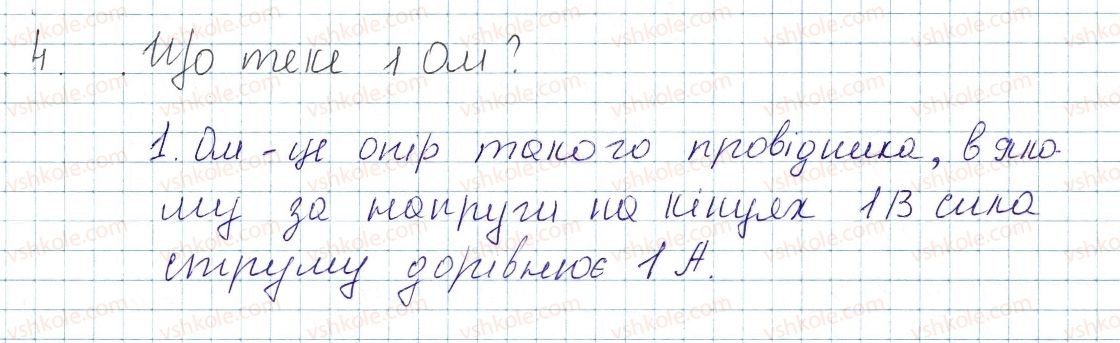 4. Що таке 1 Ом?
1. Ом - це опір такого провідника, в яко-
му за напруги на кінцях 1В сила
струму дорівнює 1 А.